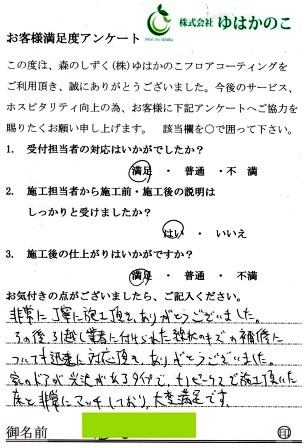 株式会社 ゆはかのこ
お客様満足度アンケート
この度は、森のしずく(株)ゆはかのこフロアコーティングを
ご利用頂き、誠にありがとうございました。今後のサービス、
ホスピタリティ向上の為、お客様に下記アンケートへご協力を
賜りたくお願い申し上げます。 該当欄を○で囲って下さい。
1. 受付担当者の対応はいかがでしたか?
満足 ・ 普通 ・ 不 満
2. 施工担当者から施工前・施工後の説明は
しっかりと受けましたか?
はい ・ いいえ
3. 施工後の仕上がりはいかがですか?
満足 ・ 普通 ・ 不満
お気付きの点がございましたら、ご記入ください。
非常に丁寧に施工頂き、ありがとうございました。
その後、引越し業者に付けられたキズの補修に
ついても迅速に対応頂き、ありがとうございました。
家のドアが光沢があるタイプで、ナノピークスで施工頂いた
床と非常にマッチしており、大変満足です。
御名前
印